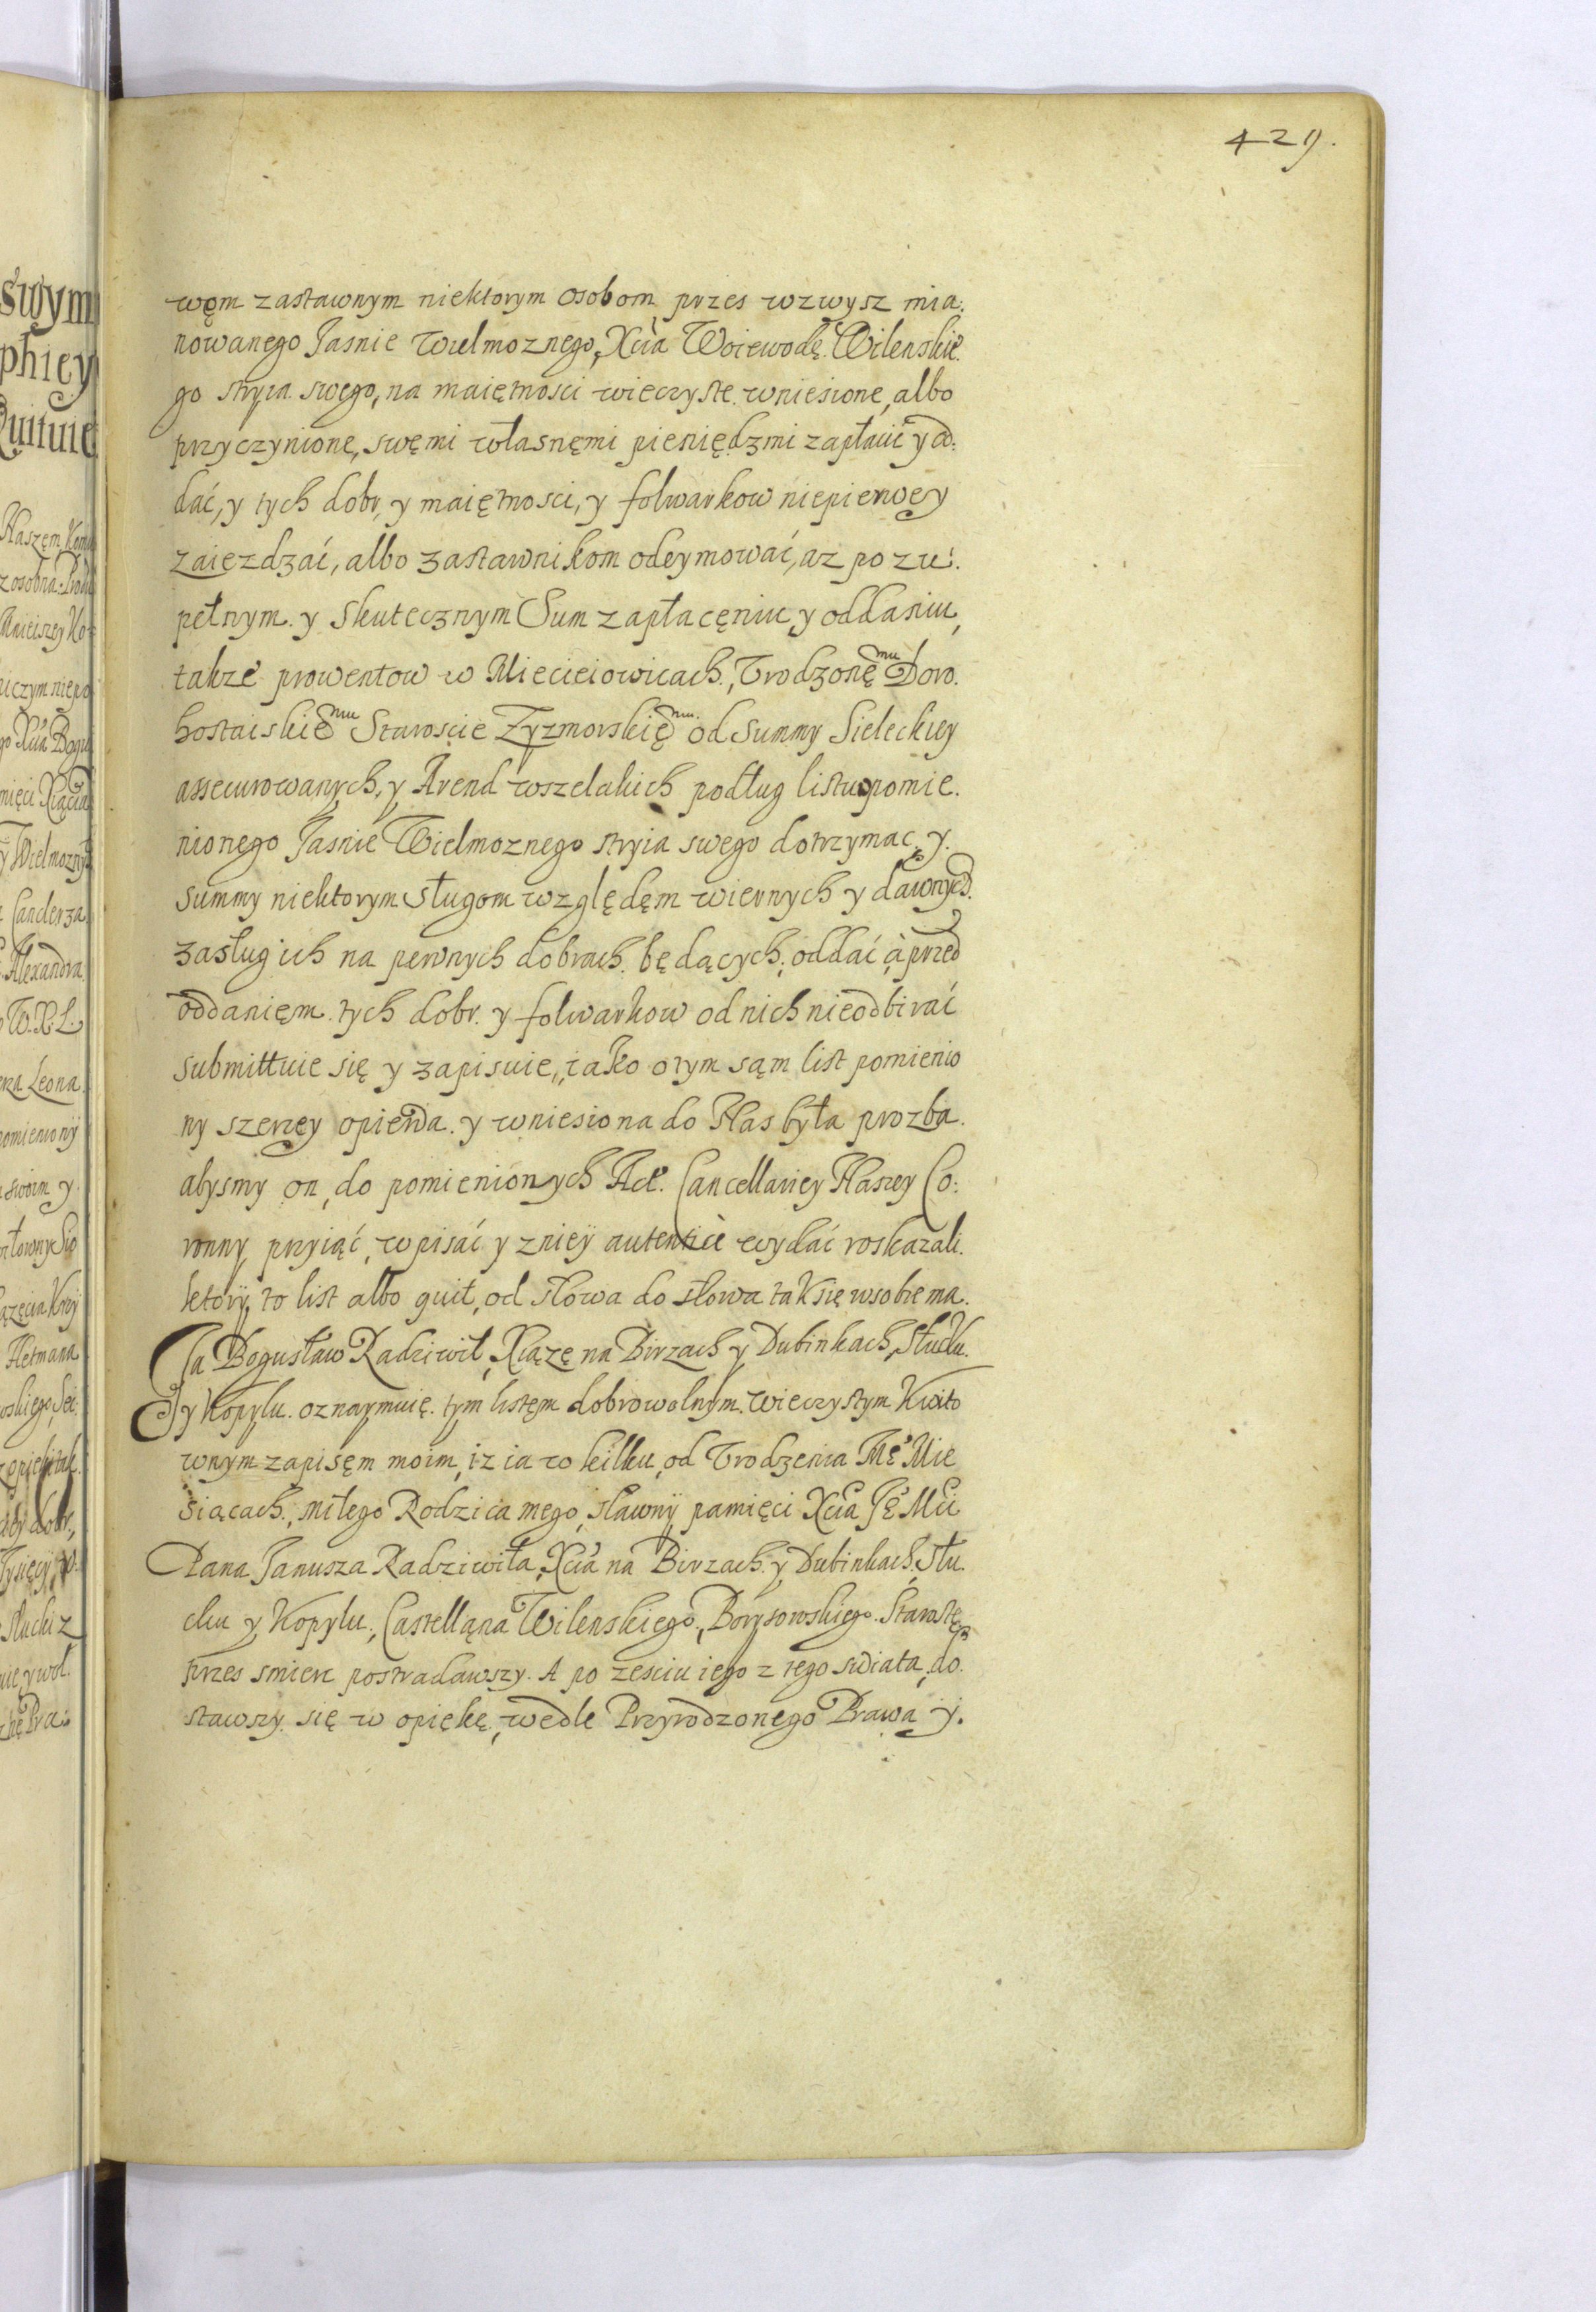 429.
węm zastawnym niektorym osobom przes wzwysz mia:
nowanego Jasnie Wielmoznego, Xcia Woiewodę Wilenskie.
go stryia swego, na maiętnosci wieczyste wniesione, albo
przyczynione, swęmi własnęmi pieniędzmi zapłacić y od:
dać, y tych dobr, y maiętnosci, y folwarkow niepierwey
zaiezdzać, albo zastawnikom odeymować, az po zu:
pełnym y skutecznym Sum zapłacęniu y oddaniu,
takze prowentow w Miecieiowicach, Urodzonęmu Doro.
hostaiskiemu Staroscie Zyzmorskięmu od Summy Sieleckiey
assecurowanych, y Arend wszelakich podług listu pomie.
nionego Jasnie Wielmoznego stryia swego dotrzymac, y.
summy niektorym sługom względęm wiernych y dawnych.
zasług ich na pewnych dobrach będących, oddać, à przed
oddanięm tych dobr y folwarkow od nich nieodbirać
submittuie się y zapisuie, iako otym sąm list pomienio
ny szerzey opiewa. y wniesiona do Nas była prozba.
abysmy on, do pomienionych Act. Cancellariey Naszey Co:
ronny przyiąć, wpisać y zniey autentice wydać roskazali.
ktorÿ to list albo quit, od słowa do słowa tak się wsobie ma.
Ja Bogusław Radziwił, Xiązę na Birzach y Dubinkach, Słucku.
y Kopylu. oznaymuię tym listęm dobrowolnym wieczystym Kwito
wnym zapisęm moim, iz ia w kilku, od Urodzenia Mę Mie
siącach, miłego Rodzica mego, sławnÿ pamięci Xcia Ję Mci
Pana Janusza Radziwiła, Xcia na Birzach y Dubinkach, Słu.
cku y Kopylu, Castellana Wilenskiego, Borysowskiego Starostę
przes smierc postradawszy. A po zesciu iego z tego swiata, do.
stawszy się w opiekę, wedle Przyrodzonego Prawa y.